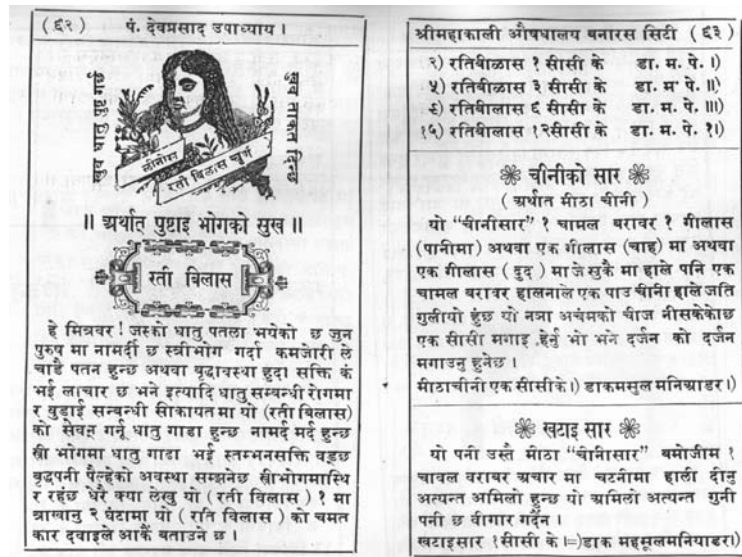 ( ९२ ) पं. देवप्रसाद् उपाध्याय ।
खुब धातु पुष्ट हु
खुब ताकत दिन्छ
लीनोस
रती बिलास चूर्ण
॥ अर्थात् पुष्टाइ भोगको सुख ॥
रती विलास
हे मित्रवर ! जस्को धातु पतला भयेको छ जुन
पुरुष मा नामर्दी छ स्त्रीभोग गर्दा कमजोरी ले
चाडै पतन हुन्छ अथवा बृद्धावस्था हुदा सक्ति कं
भई लाचार छ भने इत्यादि धातु सम्बन्धी रोगमा
र वुडाई सन्बन्धी सीकायत मा यो (रती बिलास)
को सेवन गर्नू धातु गाडा हुन्छ नामर्द मर्द हुन्छ
स्त्री भोगमा धातु गाढा भई स्तम्भनसक्ति वढ्छ
बृद्धपनी पैन्हेको अवस्था सम्झनेछ स्त्रीभोगमास्थि
र रहंछ धेरै क्या लेखु यो (रती विलास) १ मा
त्राखानु २ घंटामा यो (रति बिलास) को चमत
कार दवाइले आफैं बताउने छ ।
श्रीमहाकाली औषधालय बनारस सिटी ( ९३ )
२) रतिबीळास १ सीसी के डा. म. पे. ।)
५) रतिबीलास ३ सीसी के डा. म. पे. ॥)
८) रतिबीलास ६ सीसी के डा. म. पे. ॥।)
१५) रतिबीलास १२सीसी के डा. म. पे. १।)
चीनीको सार
( अर्थात मीठा चीनी )
यो “चीनीसार” १ चामल बरावर १ गीलास
(पानीमा) अथवा एक गीलास (चाह) मा अथवा
एक गीलास ( दुद ) माजे सुकै मा हाले पनि एक
चामल बरावर हालनाले एक पाउ चीनी हाले जति
गुलीयो हुंछ यो नञा अचंमको चीज नीसकेकोछ
एक सीसी मगाइ हेर्नु भो भने दर्जन को दर्जन
मगाउनु हुनेछ ।
मीठाचीनी एक सीसीके।) डाकमसुल मनिआडर।)
खटाइ सार
यो पनी उस्तै मीठा “चीनीसार” बमोजीम १
चावल वराबर अचार मा चटनीमा हाली दीनु
अत्यन्त अमिलो हुन्छ यो अमिलो अत्यन्त गुनी
पनी छ बीगार गर्दैन ।
खटाइसार १सीसी के।=)डाक महसूलमनियाडर।)